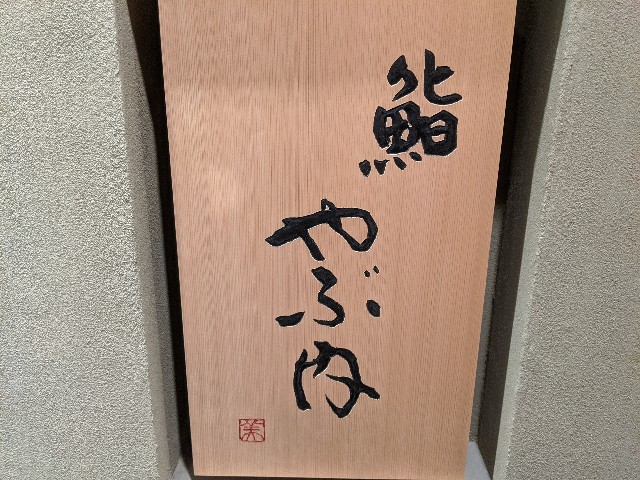 鮨
やぶ内